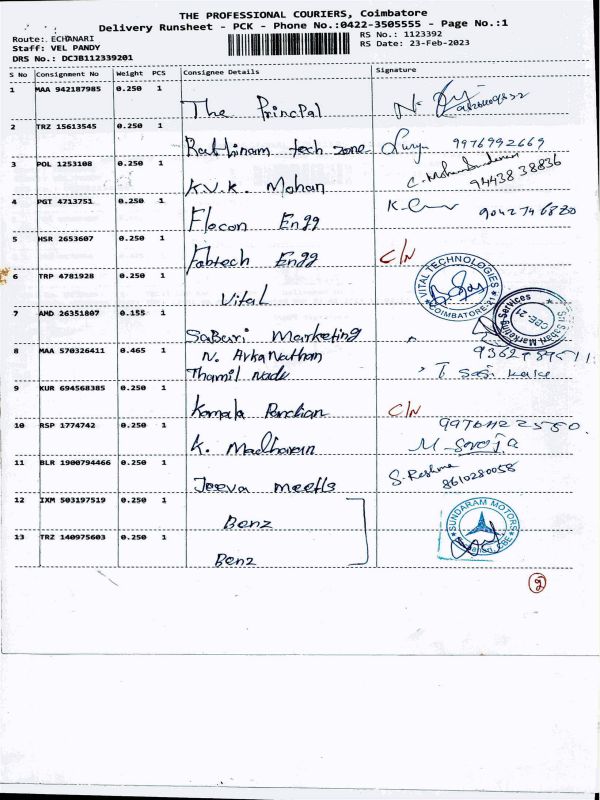 THE PROFESSIONAL COURIERS, Coimbatore
Delivery Runsheet - PCK - Phone No.:0422-3505555 - Page No.:1
Route: ECHANARI
Staff: VEL PANDY
DRS No.: DCJB112339201
RS No.: 1123392
RS Date: 23-Feb-2023
S No Consignment No Weight PCS Consignee Details Signature
1 MAA 942187985 0.250 1 The Princpal
2 TRZ 15613545 0.250 1 Rathinam tech zone 9976992669
3 POL 1253108 0.250 1 K.V.K. Mohan 9443838836
4 PGT 4713751 0.250 1 Flocon Engg
5 HSR 2653607 0.250 1 Fabtech Engg C/N
6 TRP 4781928 0.250 1 Vital
VITAL TECHNOLOGIES
COIMBATORE-21
7 AMD 26351807 0.155 1 Sabari Marketing
Sri Sabari Marketing Services
CBE-21
8 MAA 570326411 0.465 1 N. Arkanathan
Thamil nadu
9 KUR 694568385 0.250 1 Kamala Pandian C/N
10 RSP 1774742 0.250 1 K. Madhavan M-Saroja
11 BLR 1900794466 0.250 1 Jeeva meetls S. Reshma
8610280058
12 IXM 503197519 0.250 1 Benz
SUNDARAM MOTORS
13 TRZ 140975603 0.250 1 Benz
2